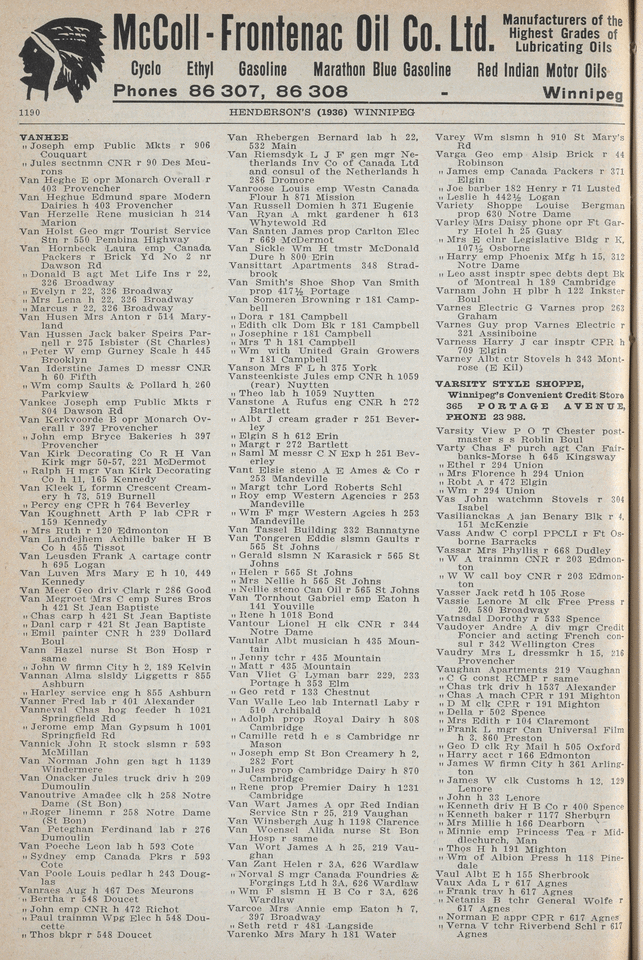 McColl-Frontenac Oil Co. Ltd.
Manufacturers of the
Highest Grades of
Lubricating Oils
Cyclo Ethyl Gasoline Marathon Blue Gasoline Red Indian Motor Oils
Phones 86 307, 86 308 - Winnipeg
1190 HENDERSON'S (1936) WINNIPEG
VANHEE
„ Joseph emp Public Mkts r 906
Couquart
„ Jules sectnmn CNR r 90 Des Meu-
rons
Van Heghe E opr Monarch Overall r
403 Provencher
Van Heghue Edmund spare Modern
Dairies h 403 Provencher
Van Herzelle Rene musician h 214
Marion
Van Holst Geo mgr Tourist Service
Stn r 550 Pembina Highway
Van Hornbeck Laura emp Canada
Packers r Brick Yd No 2 nr
Dawson Rd
„ Donald B agt Met Life Ins r 22,
326 Broadway
„ Evelyn r 22, 326 Broadway
„ Mrs Lena h 22, 326 Broadway
„ Marcus r 22, 326 Broadway
Van Husen Mrs Anton r 514 Mary-
land
Van Hussen Jack baker Speirs Par-
nell r 275 Isbister (St Charles)
„ Peter W emp Gurney Scale h 445
Brooklyn
Van Iderstine James D messr CNR
h 60 Fifth
„ Wm comp Saults & Pollard h 260
Parkview
Vankee Joseph emp Public Mkts r
804 Dawson Rd
Van Kerkvoorde B opr Monarch Ov-
erall r 397 Provencher
„ John emp Bryce Bakeries h 397
Provencher
Van Kirk Decorating Co R H Van
Kirk mgr 50-57, 221 McDermot
„ Ralph H mgr Van Kirk Decorating
Co h 11, 165 Kennedy
Van Kleek L formn Crescent Cream-
ery h 73, 519 Burnell
„ Percy eng CPR h 764 Beverley
Van Koughnett Arth P lab CPR r
159 Kennedy
„ Mrs Ruth r 120 Edmonton
Van Landejhem Achille baker H B
Co h 455 Tissot
Van Leusden Frank A cartage contr
h 695 Logan
Van Luven Mrs Mary E h 10, 449
Kennedy
Van Meer Geo driv Clark r 286 Good
Van Megroet Mrs C emp Sures Bros
h 421 St Jean Baptiste
„ Chas carp h 421 St Jean Baptiste
„ Danl carp r 421 St Jean Baptiste
„ Emil painter CNR h 239 Dollard
Boul
Vann Hazel nurse St Bon Hosp r
same
„ John W firmn City h 2, 189 Kelvin
Vannan Alma slsldy Liggetts r 855
Ashburn
„ Harley service eng h 855 Ashburn
Vanner Fred lab r 401 Alexander
Vanneval Chas hog feeder h 1021
Springfield Rd
„ Jerome emp Man Gypsum h 1001
Springfield Rd
Vannick John R stock slsmn r 593
McMillan
Van Norman John gen agt h 1139
Windermere
Van Omacker Jules truck driv h 209
Dumoulin
Vanoutrive Amadee clk h 258 Notre
Dame (St Bon)
„ Roger linemn r 258 Notre Dame
(St Bon)
Van Peteghan Ferdinand lab r 276
Dumoulin
Van Poeche Leon lab h 593 Cote
„ Sydney emp Canada Pkrs r 593
Cote
Van Poole Louis pedlar h 243 Doug-
las
Vanraes Aug h 467 Des Meurons
„ Bertha r 548 Doucet
„ John emp CNR h 472 Richot
„ Paul trainmn Wpg Elec h 548 Dou-
cette
„ Thos bkpr r 548 Doucet
Van Rhebergen Bernard lab h 22,
532 Main
Van Riemsdyk L J F gen mgr Ne-
therlands Inv Co of Canada Ltd
and consul of the Netherlands h
286 Dromore
Vanroose Louis emp Westn Canada
Flour h 871 Mission
Van Russell Domien h 371 Eugenie
Van Ryan A mkt gardener h 613
Whytewold Rd
Van Santen James prop Carlton Elec
r 669 McDermot
Van Sickle Wm H tmstr McDonald
Dure h 800 Erin
Vansittart Apartments 348 Strad-
brook
Van Smith's Shoe Shop Van Smith
prop 417½ Portage
Van Someren Browning r 181 Camp-
bell
„ Dora r 181 Campbell
„ Edith clk Dom Bk r 181 Campbell
„ Josephine r 181 Campbell
„ Mrs T h 181 Campbell
„ Wm with United Grain Growers
r 181 Campbell
Vanson Mrs F L h 375 York
Vansteenkiste Jules emp CNR h 1059
(rear) Nuytten
„ Theo lab h 1059 Nuytten
Vanstone A Rufus eng CNR h 272
Bartlett
„ Albt J cream grader r 251 Bever-
ley
„ Elgin S h 612 Erin
„ Margt r 272 Bartlett
„ Saml M messr C N Exp h 251 Bev-
erley
Vant Elsie steno A E Ames & Co r
253 Mandeville
„ Margt tchr Lord Roberts Schl
„ Roy emp Western Agencies r 253
Mandeville
„ Wm F mgr Western Agcies h 253
Mandeville
Van Tassel Building 332 Bannatyne
Van Tongeren Eddie slsmn Gaults r
565 St Johns
„ Gerald slsmn N Karasick r 565 St
Johns
„ Helen r 565 St Johns
„ Mrs Nellie h 565 St Johns
„ Nellie steno Can Oil r 565 St Johns
Van Tornhout Gabriel emp Eaton h
141 Youville
„ Rene h 1018 Bond
Vantour Lionel H clk CNR r 344
Notre Dame
Vanular Albt musician h 435 Moun-
tain
„ Jenny tchr r 435 Mountain
„ Matt r 435 Mountain
Van Vliet G Lyman barr 229, 233
Portage h 353 Elm
„ Geo retd r 133 Chestnut
Van Walle Leo lab Internatl Laby r
510 Archibald
„ Adolph prop Royal Dairy h 808
Cambridge
„ Camille retd h e s Cambridge nr
Mason
„ Joseph emp St Bon Creamery h 2,
282 Fort
„ Jules prop Cambridge Dairy h 870
Cambridge
„ Rene prop Premier Dairy h 1231
Cambridge
Van Wart James A opr Red Indian
Service Stn r 25, 219 Vaughan
Van Winsbergh Aug h 1198 Clarence
Van Woensel Alida nurse St Bon
Hosp r same
Van Wort James A h 25, 219 Vau-
ghan
Van Zant Helen r 3A, 626 Wardlaw
„ Norval S mgr Canada Foundries &
Forgings Ltd h 3A, 626 Wardlaw
„ Wm F slsmn H B Co r 3A, 626
Wardlaw
Varcoe Mrs Annie emp Eaton h 7,
397 Broadway
„ Seth retd r 481 Langside
Varenko Mrs Mary h 181 Water
Varey Wm slsmn h 910 St Mary's
Rd
Varga Geo emp Alsip Brick r 44
Robinson
„ James emp Canada Packers r 371
Elgin
„ Joe barber 182 Henry r 71 Lusted
„ Leslie h 442½ Logan
Variety Shoppe Louise Bergman
prop 630 Notre Dame
Varley Mrs Daisy phone opr Ft Gar-
ry Hotel h 25 Guay
„ Mrs E clnr Legislative Bldg r K,
107½ Osborne
„ Harry emp Phoenix Mfg h 15, 312
Notre Dame
„ Leo asst insptr spec debts dept Bk
of Montreal h 189 Cambridge
Varnam John H plbr h 122 Inkster
Boul
Varnes Electric G Varnes prop 263
Graham
Varnes Guy prop Varnes Electric r
321 Assiniboine
Varness Harry J car insptr CPR h
709 Elgin
Varney Albt ctr Stovels h 343 Mont-
rose (E Kil)
VARSITY STYLE SHOPPE,
Winnipeg's Convenient Credit Store
365 PORTAGE AVENUE,
PHONE 23 988.
Varsity View P O T Chester post-
master s s Roblin Boul
Varty Chas F purch agt Can Fair-
banks-Morse h 645 Kingsway
„ Ethel r 294 Union
„ Mrs Florence h 294 Union
„ Robt A r 472 Elgin
„ Wm r 294 Union
Vas John watchmn Stovels r 304
Isabel
Vasilianckas A jan Benary Blk r 4,
151 McKenzie
Vass Andw C corpl PPCLI r Ft Os-
borne Barracks
Vassar Mrs Phyllis r 668 Dudley
„ W A trainmn CNR r 203 Edmon-
ton
„ W W call boy CNR r 203 Edmon-
ton
Vasser Jack retd h 105 Rose
Vassie Lenore M clk Free Press r
20, 580 Broadway
Vatnsdal Dorothy r 533 Spence
Vaudoyer Andre A div mgr Credit
Foncier and acting French con-
sul r 342 Wellington Cres
Vaudry Mrs L dressmkr h 15, 216
Provencher
Vaughan Apartments 219 Vaughan
„ C G const RCMP r same
„ Chas trk driv h 1537 Alexander
„ Chas A mach CPR r 191 Mighton
„ D M clk CPR r 191 Mighton
„ Della r 502 Spence
„ Mrs Edith r 104 Claremont
„ Frank L mgr Can Universal Film
h 3, 860 Preston
„ Geo D clk Ry Mail h 505 Oxford
„ Harry acct r 166 Edmonton
„ James W firmn City h 361 Arling-
ton
„ James W clk Customs h 12, 129
Lenore
„ John h 33 Lenore
„ Kenneth driv H B Co r 400 Spence
„ Kenneth baker r 1177 Sherburn
„ Mrs Millie h 166 Dearborn
„ Minnie emp Princess Tea r Mid-
dlechurch, Man
„ Thos H h 191 Mighton
„ Wm of Albion Press h 118 Pine-
dale
Vaul Albt E h 155 Sherbrook
Vaux Ada L r 617 Agnes
„ Frank trav h 617 Agnes
„ Netanis B tchr General Wolfe r
617 Agnes
„ Norman E appr CPR r 617 Agnes
„ Verna V tchr Riverbend Schl r 617
Agnes